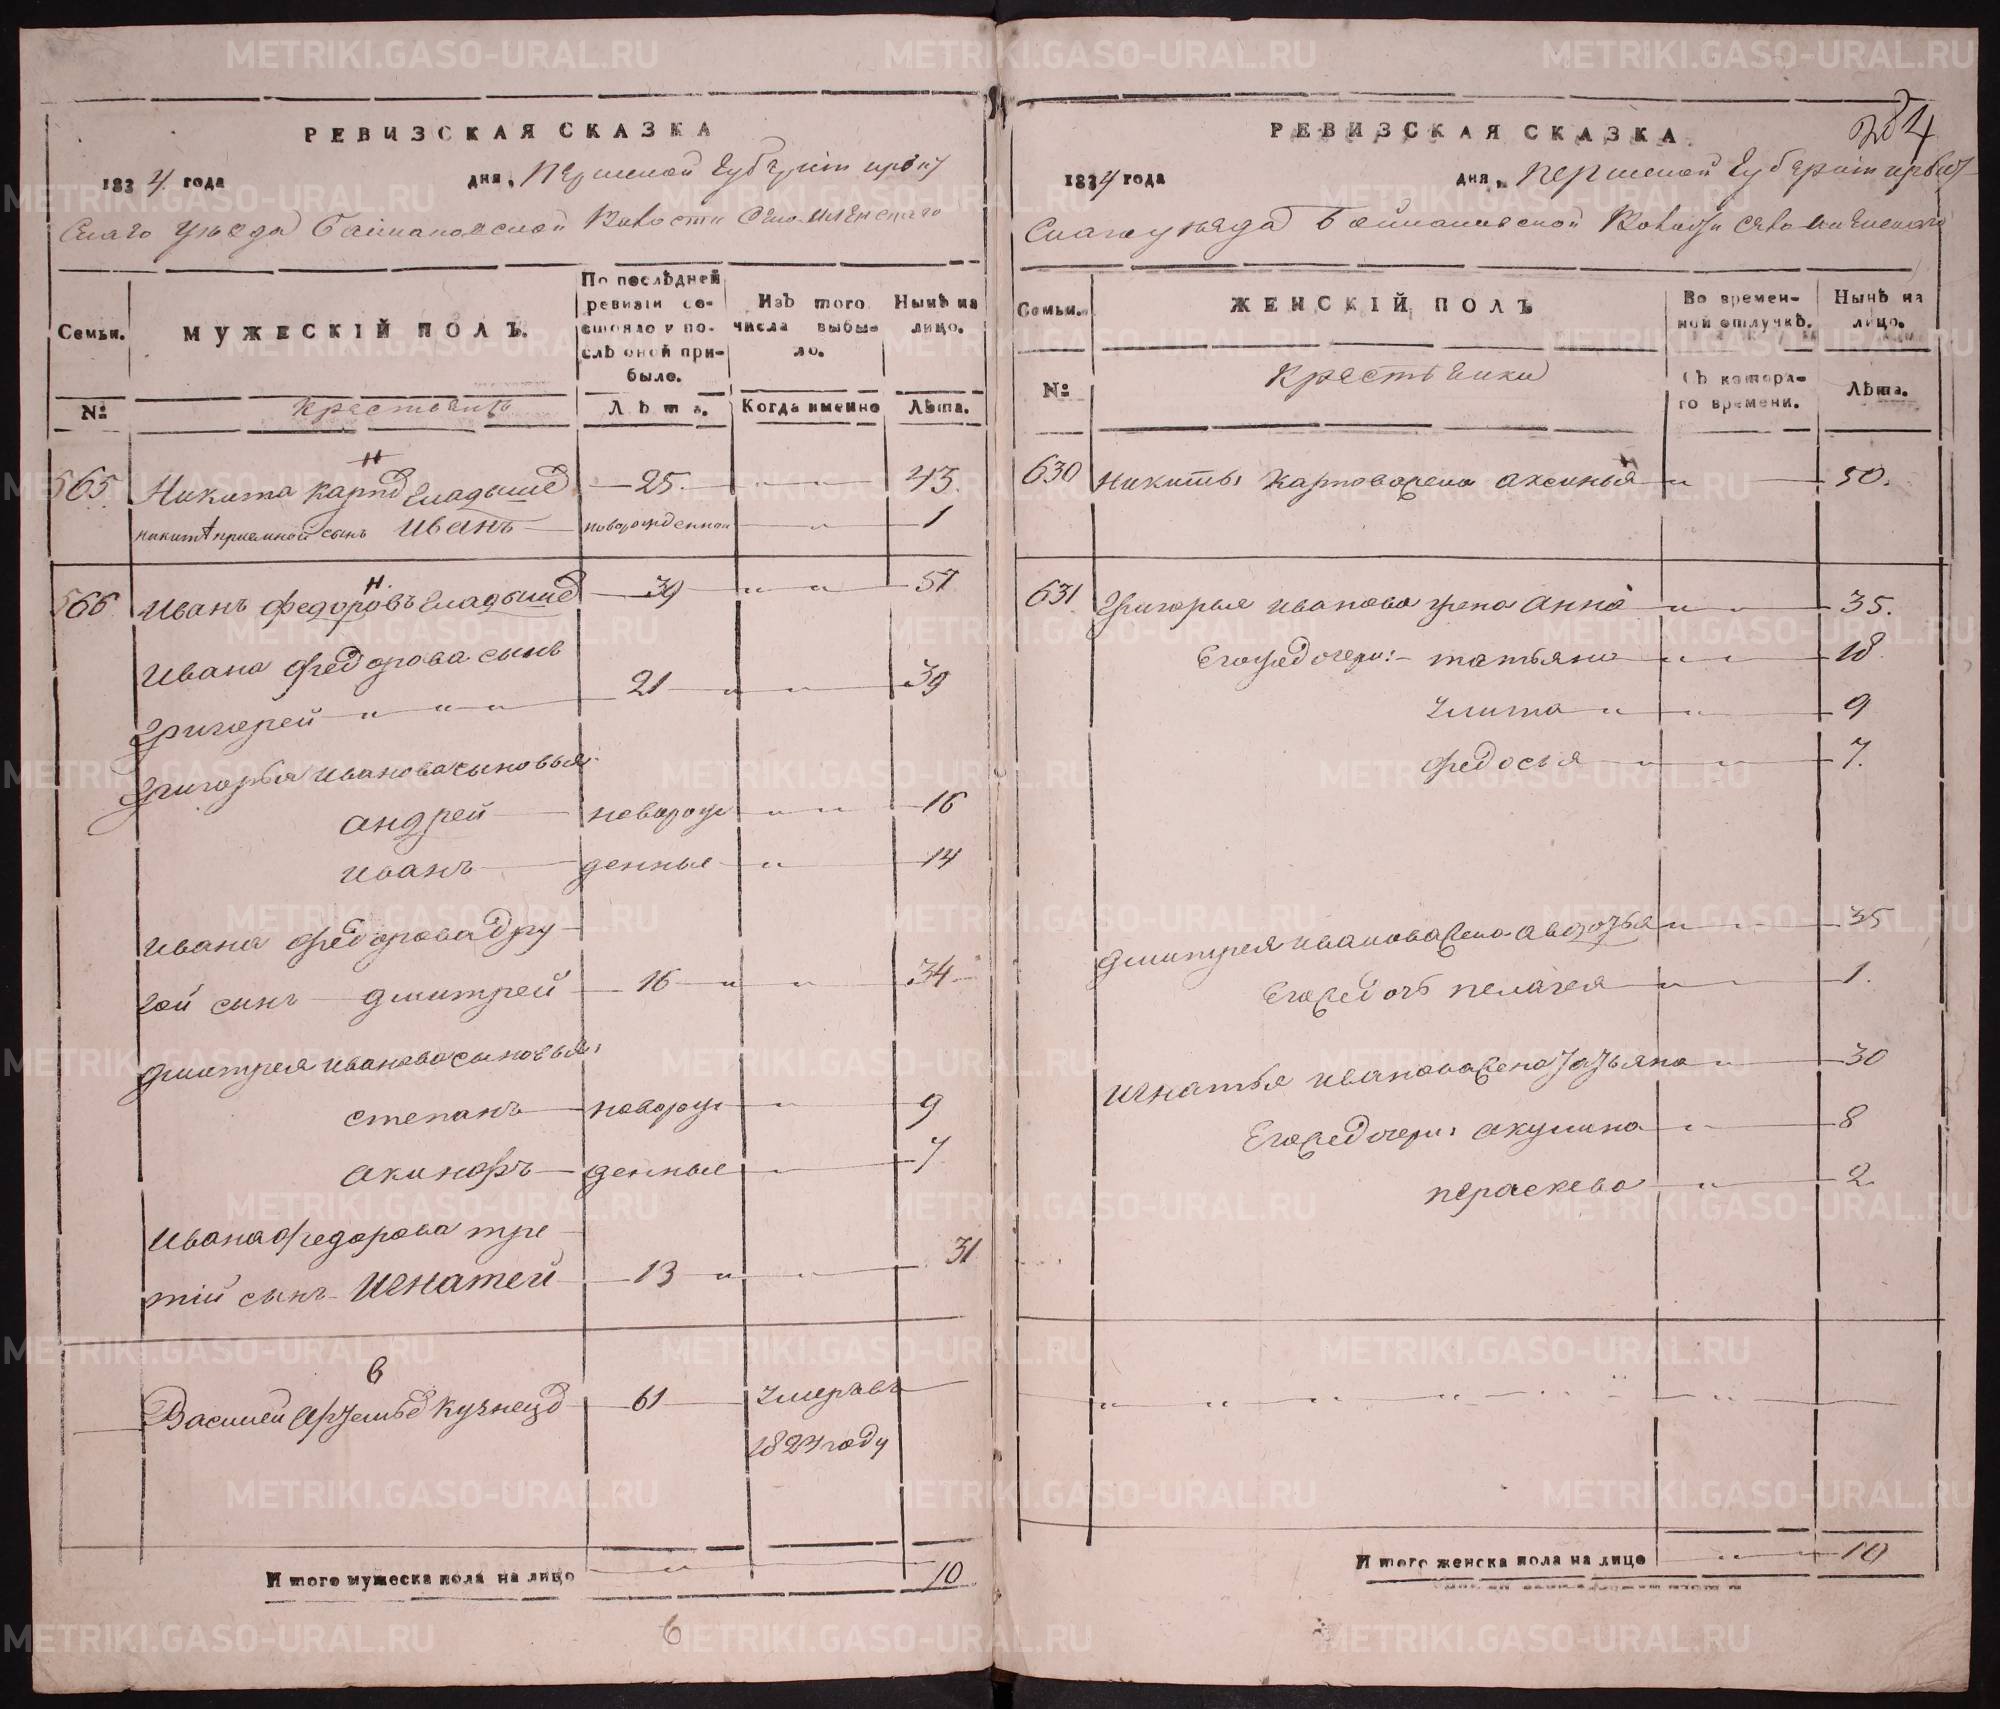 РЕВИЗСКАЯ СКАЗКА
1834 года дня, Пермской Губерніи Ирбит
скаго уѣзда Баймановской Волости Село
Семьи. МУЖЕСКІЙ ПОЛЪ. По послѣдней ревизіи состояло и послѣ оной прибыло. Изъ того числа выбыло. Нынѣ на лицо.
№ Крестьянъ Лѣта. Когда именно Лѣта.
565 Никита Карповъ Гладышевъ 25. 43.
никиты приемной сынъ Иванъ новорожденной 1
566 Иванъ Федоровъ Гладышевъ 39 57
Ивана Федорова сынъ
Григорей 21 39
Григорья Иванова сыновья
Андрей новорож 16
Иванъ денные 14
Ивана Федорова дру
гой сынъ Дмитрей 16 34
Дмитрея Иванова сыновья:
Степанъ новорож 9
Акинфъ денные 7
Ивана Федорова тре
тій сынъ Игнатей 13 31
6
Василей Артемьевъ Кузнецовъ 61 Умеръ въ
1824 году
Итого мужеска пола на лицо 10
6
284
РЕВИЗСКАЯ СКАЗКА
1834 года дня, Пермской Губерніи Ирбит
скаго уѣзда Баймановской Волости Село
Семьи. ЖЕНСКІЙ ПОЛЪ Во временной отлучкѣ. Нынѣ на лицо.
№ Крестьянки Съ котораго времени. Лѣта.
630 Никиты Карпова жена Аксинья 50.
631 Григорья Иванова жена Анна 35.
Его же дочери: Татьяна 18
Улита 9
Федосья 7.
Дмитрея Иванова жена Авдотья 35
Его же дочь Пелагея 1.
Игнатья Иванова жена Татьяна 30
Его же дочери: Акулина 8
Параскева 2
Итого женска пола на лицо 10
METRIKI.GASO-URAL.RU